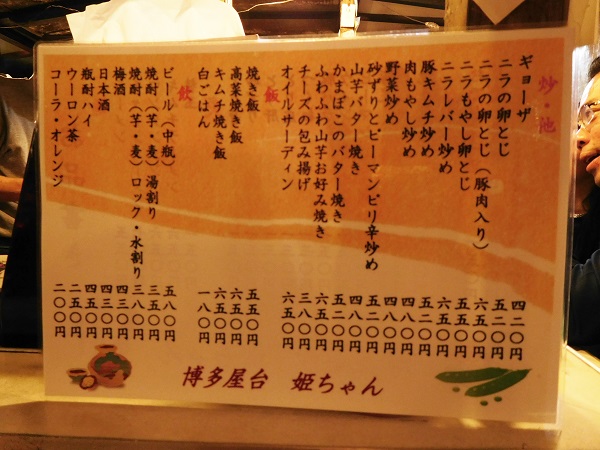 炒・他
ギョーザ 四二〇円
ニラの卵とじ 五二〇円
ニラの卵とじ（豚肉入り） 六五〇円
ニラもやし卵とじ 五五〇円
ニラレバー炒め 六五〇円
豚キムチ炒め 五二〇円
肉もやし炒め 四八〇円
野菜炒め 四八〇円
砂ずりとピーマンピリ辛炒め 五二〇円
山芋バター焼き 四八〇円
かまぼこのバター焼き 五二〇円
ふわふわ山芋お好み焼き 六五〇円
チーズの包み揚げ 三八〇円
オイルサーディン 六五〇円
飯
焼き飯 五五〇円
高菜焼き飯 六五〇円
キムチ焼き飯 六五〇円
白ごはん 一八〇円
飲
ビール（中瓶） 五八〇円
焼酎（芋・麦）湯割り 三五〇円
焼酎（芋・麦）ロック・水割り 三八〇円
梅酒 四三〇円
日本酒 四五〇円
瓶酎ハイ
ウーロン茶 二五〇円
コーラ・オレンジ 二〇〇円
博多屋台 姫ちゃん